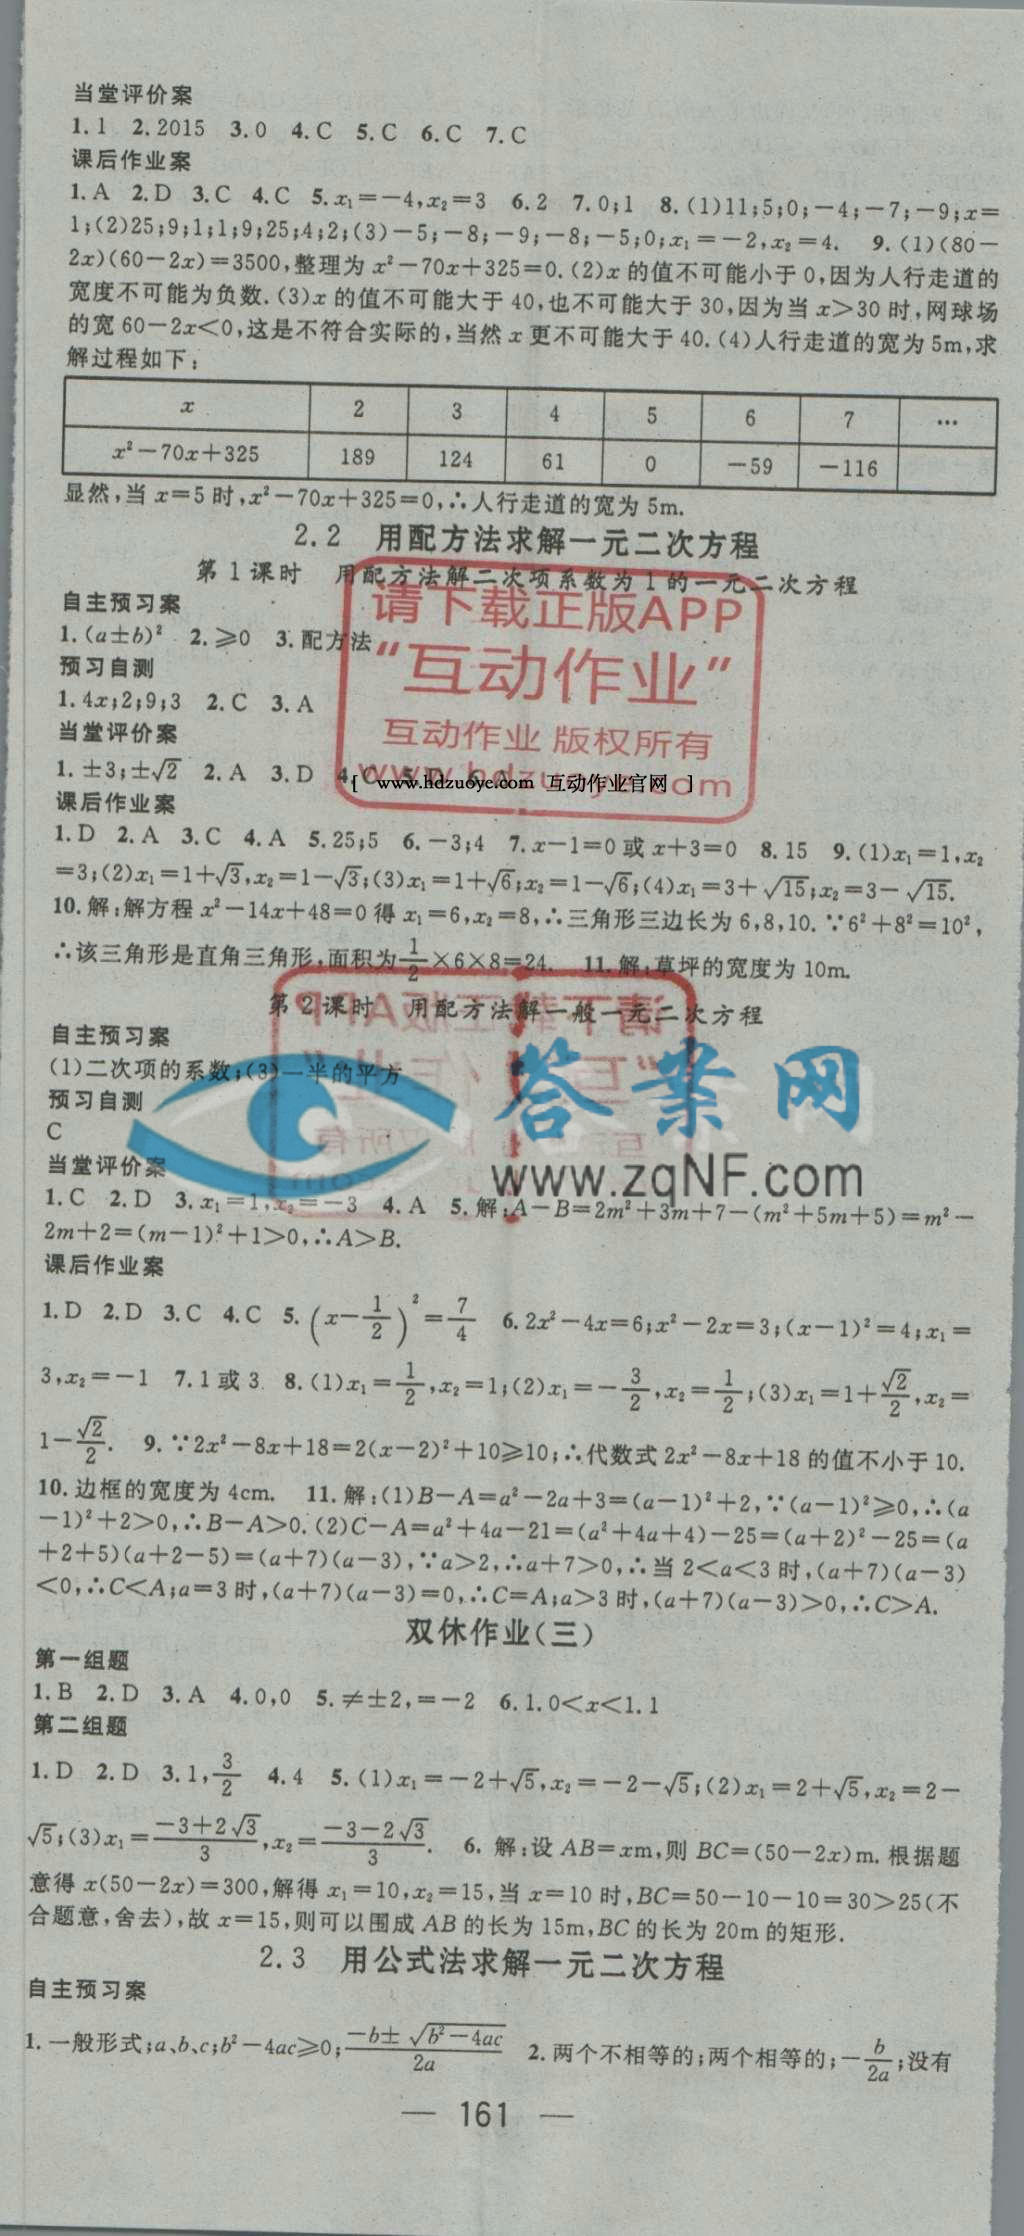 当堂评价案
1.1 2.2015 3.0 4.C 5.C 6.C 7.C
课后作业案
1.A 2.D 3.C 4.C 5.x₁=-4,x₂=3 6.2 7.0;1 8.(1)11;5;0;-4;-7;-9;x=
1;(2)25;9;1;1;9;25;4;2;(3)-5;-8;-9;-8;-5;0;x₁=-2,x₂=4. 9.(1)(80-
2x)(60-2x)=3500,整理为x²-70x+325=0.(2)x的值不可能小于0,因为人行走道的
宽度不可能为负数.(3)x的值不可能大于40,也不可能大于30,因为当x>30时,网球场
的宽60-2x<0,这是不符合实际的,当然x更不可能大于40.(4)人行走道的宽为5m,求
解过程如下:
x 2 3 4 5 6 7 …
x²-70x+325 189 124 61 0 -59 -116
显然,当x=5时,x²-70x+325=0,∴人行走道的宽为5m.
2.2 用配方法求解一元二次方程
第1课时 用配方法解二次项系数为1的一元二次方程
自主预习案
1.(a±b)² 2.≥0 3.配方法
预习自测
1.4x;2;9;3 2.C 3.A
当堂评价案
1.±3;±√2 2.A 3.D 4.C 5.D 6.A
课后作业案
1.D 2.A 3.C 4.A 5.25;5 6.-3;4 7.x-1=0或x+3=0 8.15 9.(1)x₁=1,x₂
=3;(2)x₁=1+√3,x₂=1-√3;(3)x₁=1+√6;x₂=1-√6;(4)x₁=3+√15;x₂=3-√15.
10.解:解方程x²-14x+48=0得x₁=6,x₂=8,∴三角形三边长为6,8,10.∵6²+8²=10²,
∴该三角形是直角三角形,面积为1/2×6×8=24. 11.解:草坪的宽度为10m.
第2课时 用配方法解一般一元二次方程
自主预习案
(1)二次项的系数;(3)一半的平方
预习自测
C
当堂评价案
1.C 2.D 3.x₁=1,x₂=-3 4.A 5.解:A-B=2m²+3m+7-(m²+5m+5)=m²-
2m+2=(m-1)²+1>0,∴A>B.
课后作业案
1.D 2.D 3.C 4.C 5.(x-1/2)²=7/4 6.2x²-4x=6;x²-2x=3;(x-1)²=4;x₁=
3,x₂=-1 7.1或3 8.(1)x₁=1/2,x₂=1;(2)x₁=-3/2,x₂=1/2;(3)x₁=1+√2/2,x₂=
1-√2/2. 9.∵2x²-8x+18=2(x-2)²+10≥10;∴代数式2x²-8x+18的值不小于10.
10.边框的宽度为4cm. 11.解:(1)B-A=a²-2a+3=(a-1)²+2,∵(a-1)²≥0,∴(a
-1)²+2>0,∴B-A>0.(2)C-A=a²+4a-21=(a²+4a+4)-25=(a+2)²-25=(a
+2+5)(a+2-5)=(a+7)(a-3),∵a>2,∴a+7>0,∴当2<a<3时,(a+7)(a-3)
<0,∴C<A;a=3时,(a+7)(a-3)=0,∴C=A;a>3时,(a+7)(a-3)>0,∴C>A.
双休作业(三)
第一组题
1.B 2.D 3.A 4.0,0 5.≠±2,=-2 6.1.0<x<1.1
第二组题
1.D 2.D 3.1,3/2 4.4 5.(1)x₁=-2+√5,x₂=-2-√5;(2)x₁=2+√5,x₂=2-
√5;(3)x₁=(-3+2√3)/3,x₂=(-3-2√3)/3. 6.解:设AB=xm,则BC=(50-2x)m.根据题
意得x(50-2x)=300,解得x₁=10,x₂=15,当x=10时,BC=50-10-10=30>25(不
合题意,舍去),故x=15,则可以围成AB的长为15m,BC的长为20m的矩形.
2.3 用公式法求解一元二次方程
自主预习案
1.一般形式;a、b、c;b²-4ac≥0;(-b±√(b²-4ac))/2a 2.两个不相等的;两个相等的;-b/2a;没有
— 161 —
请下载正版APP
“互动作业”
互动作业 版权所有
www.hdzuoye.com
[ www.hdzuoye.com 互动作业官网 ]
答案网
www.zqNF.com